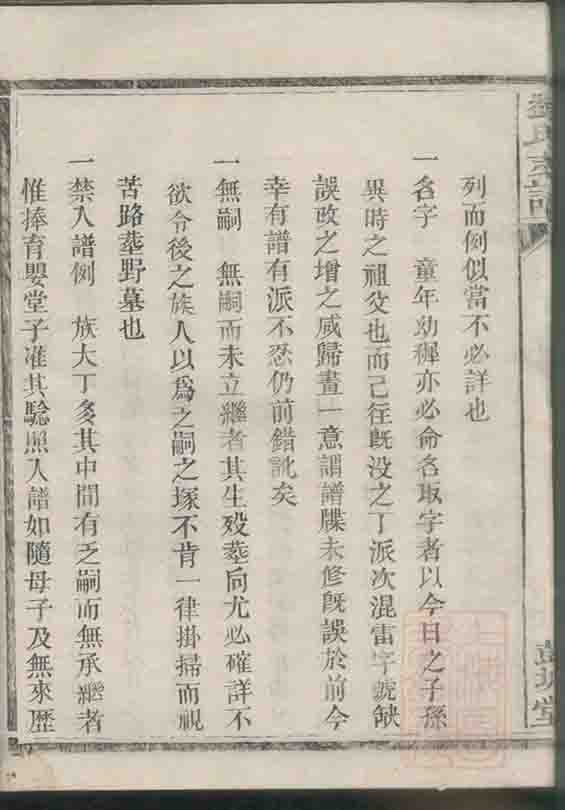 列而例似當不必詳也
一名字　童年幼穉亦必命名取字者以今日之子孫
異時之祖父也而己往旣没之丁派次混雷字號缺
誤改之增之咸歸畫一意謂譜牒未修旣誤於前今
幸有譜有派不忍仍前錯訛矣
一無嗣　無嗣而未立繼者其生殁塟向尤必確詳不
欲令後之族人以爲之嗣之塚不肯一律掛掃而視
苦路塟野墓也
一禁入譜例　族大丁多其中間有乏嗣而無承繼者
惟捧育嬰堂子准其驗照入譜如隨母子及無來歷